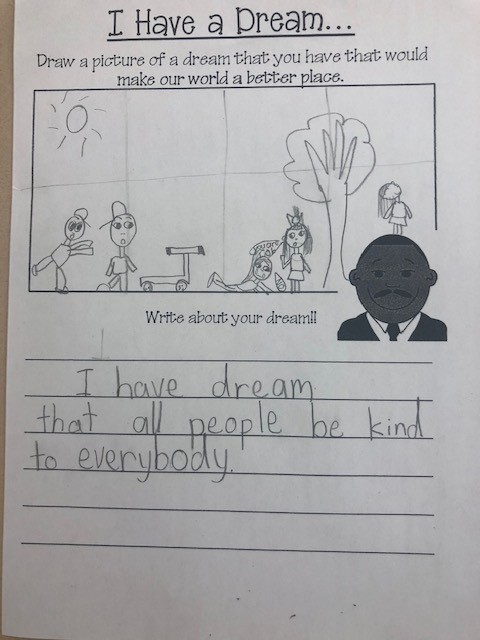 I Have a Dream...
Draw a picture of a dream that you have that would
make our world a better place.
Write about your dream!!
I have dream
that all people be kind
to everybody.